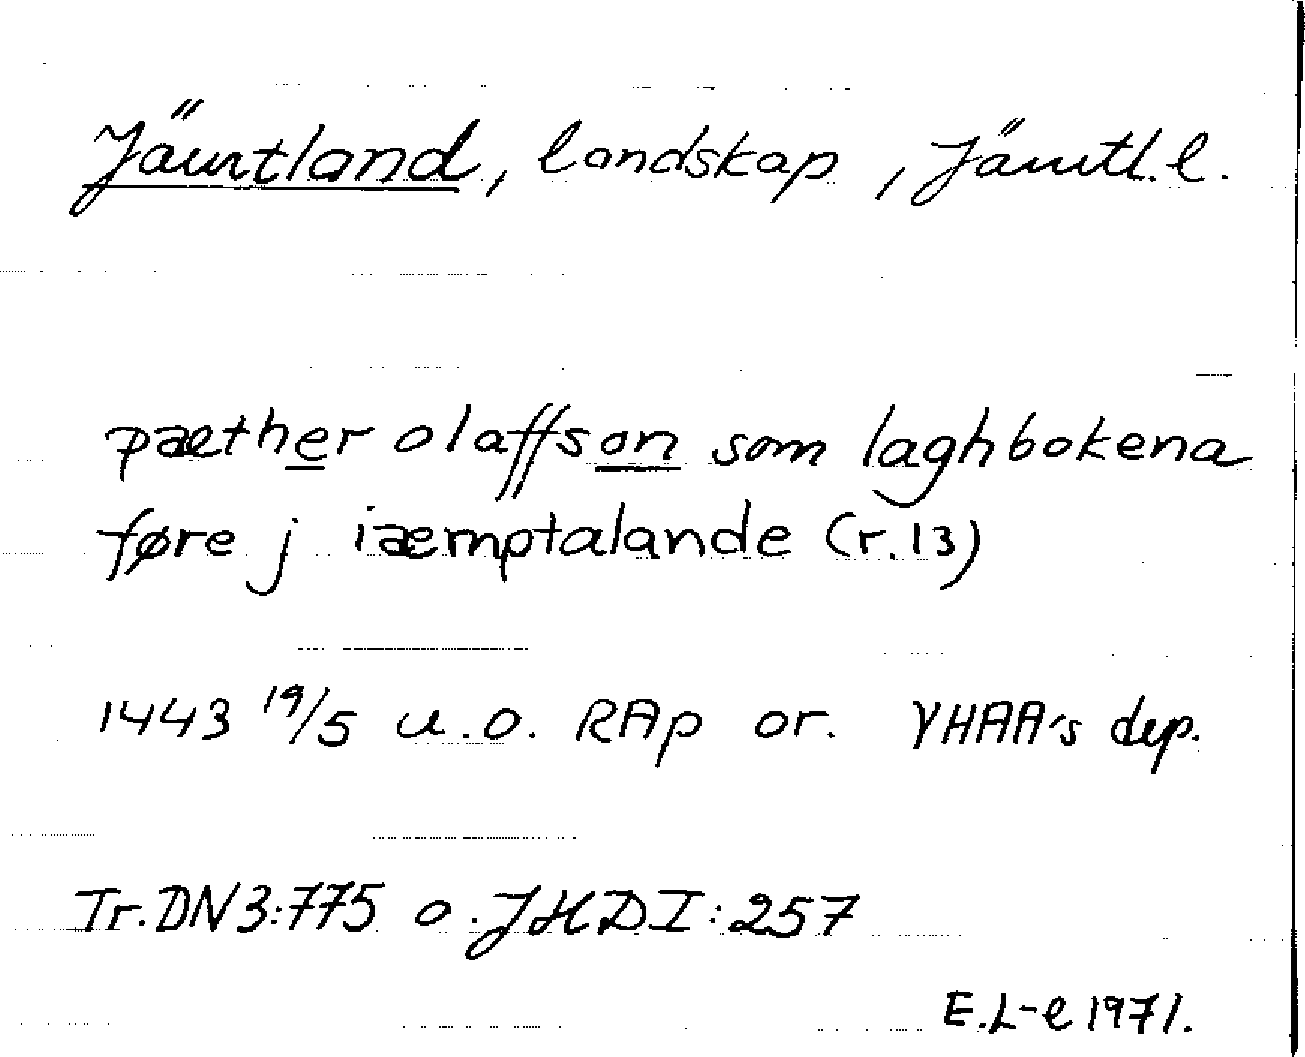 Jämtland, landskap, Jämtl. l.
pæther olaffson som laghbokena
føre j iæmptalande (r. 13)
1443 19/5 u.o. RAp or. VHAA's dep.
Tr. DN 3:775 o. JHD I:257
E.L-e 1971.